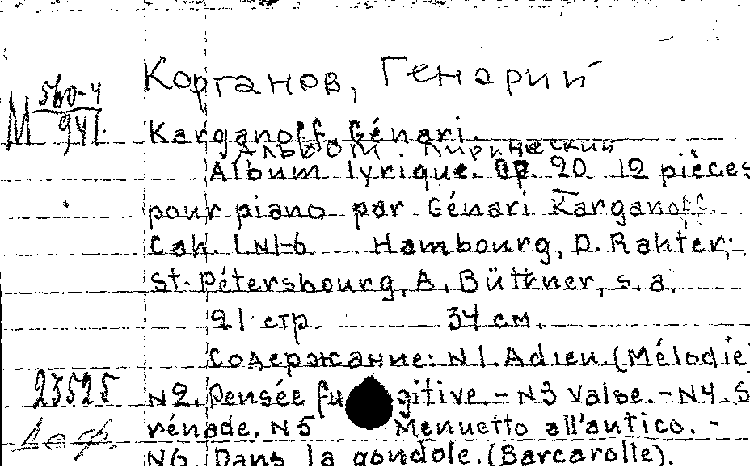 Корганов, Генарий
М 560-4
941.
Karganoff, Génari.
Альбом лирический
Album lyrique. Op. 20 12 pièces
pour piano par Génari Karganoff.
Cah. I N1-6 Hambourg, D. Rahter;
St. Pétersbourg, A. Büttner, s. a.
21 стр. 34 см.
Содержание: N1. Adieu (Mélodie)
N2. Pensée fugitive. - N3 Valse. - N4. S
23525
rénade. N5 Menuetto all'antico. -
N6 Dans la gondole. (Barcarolle).